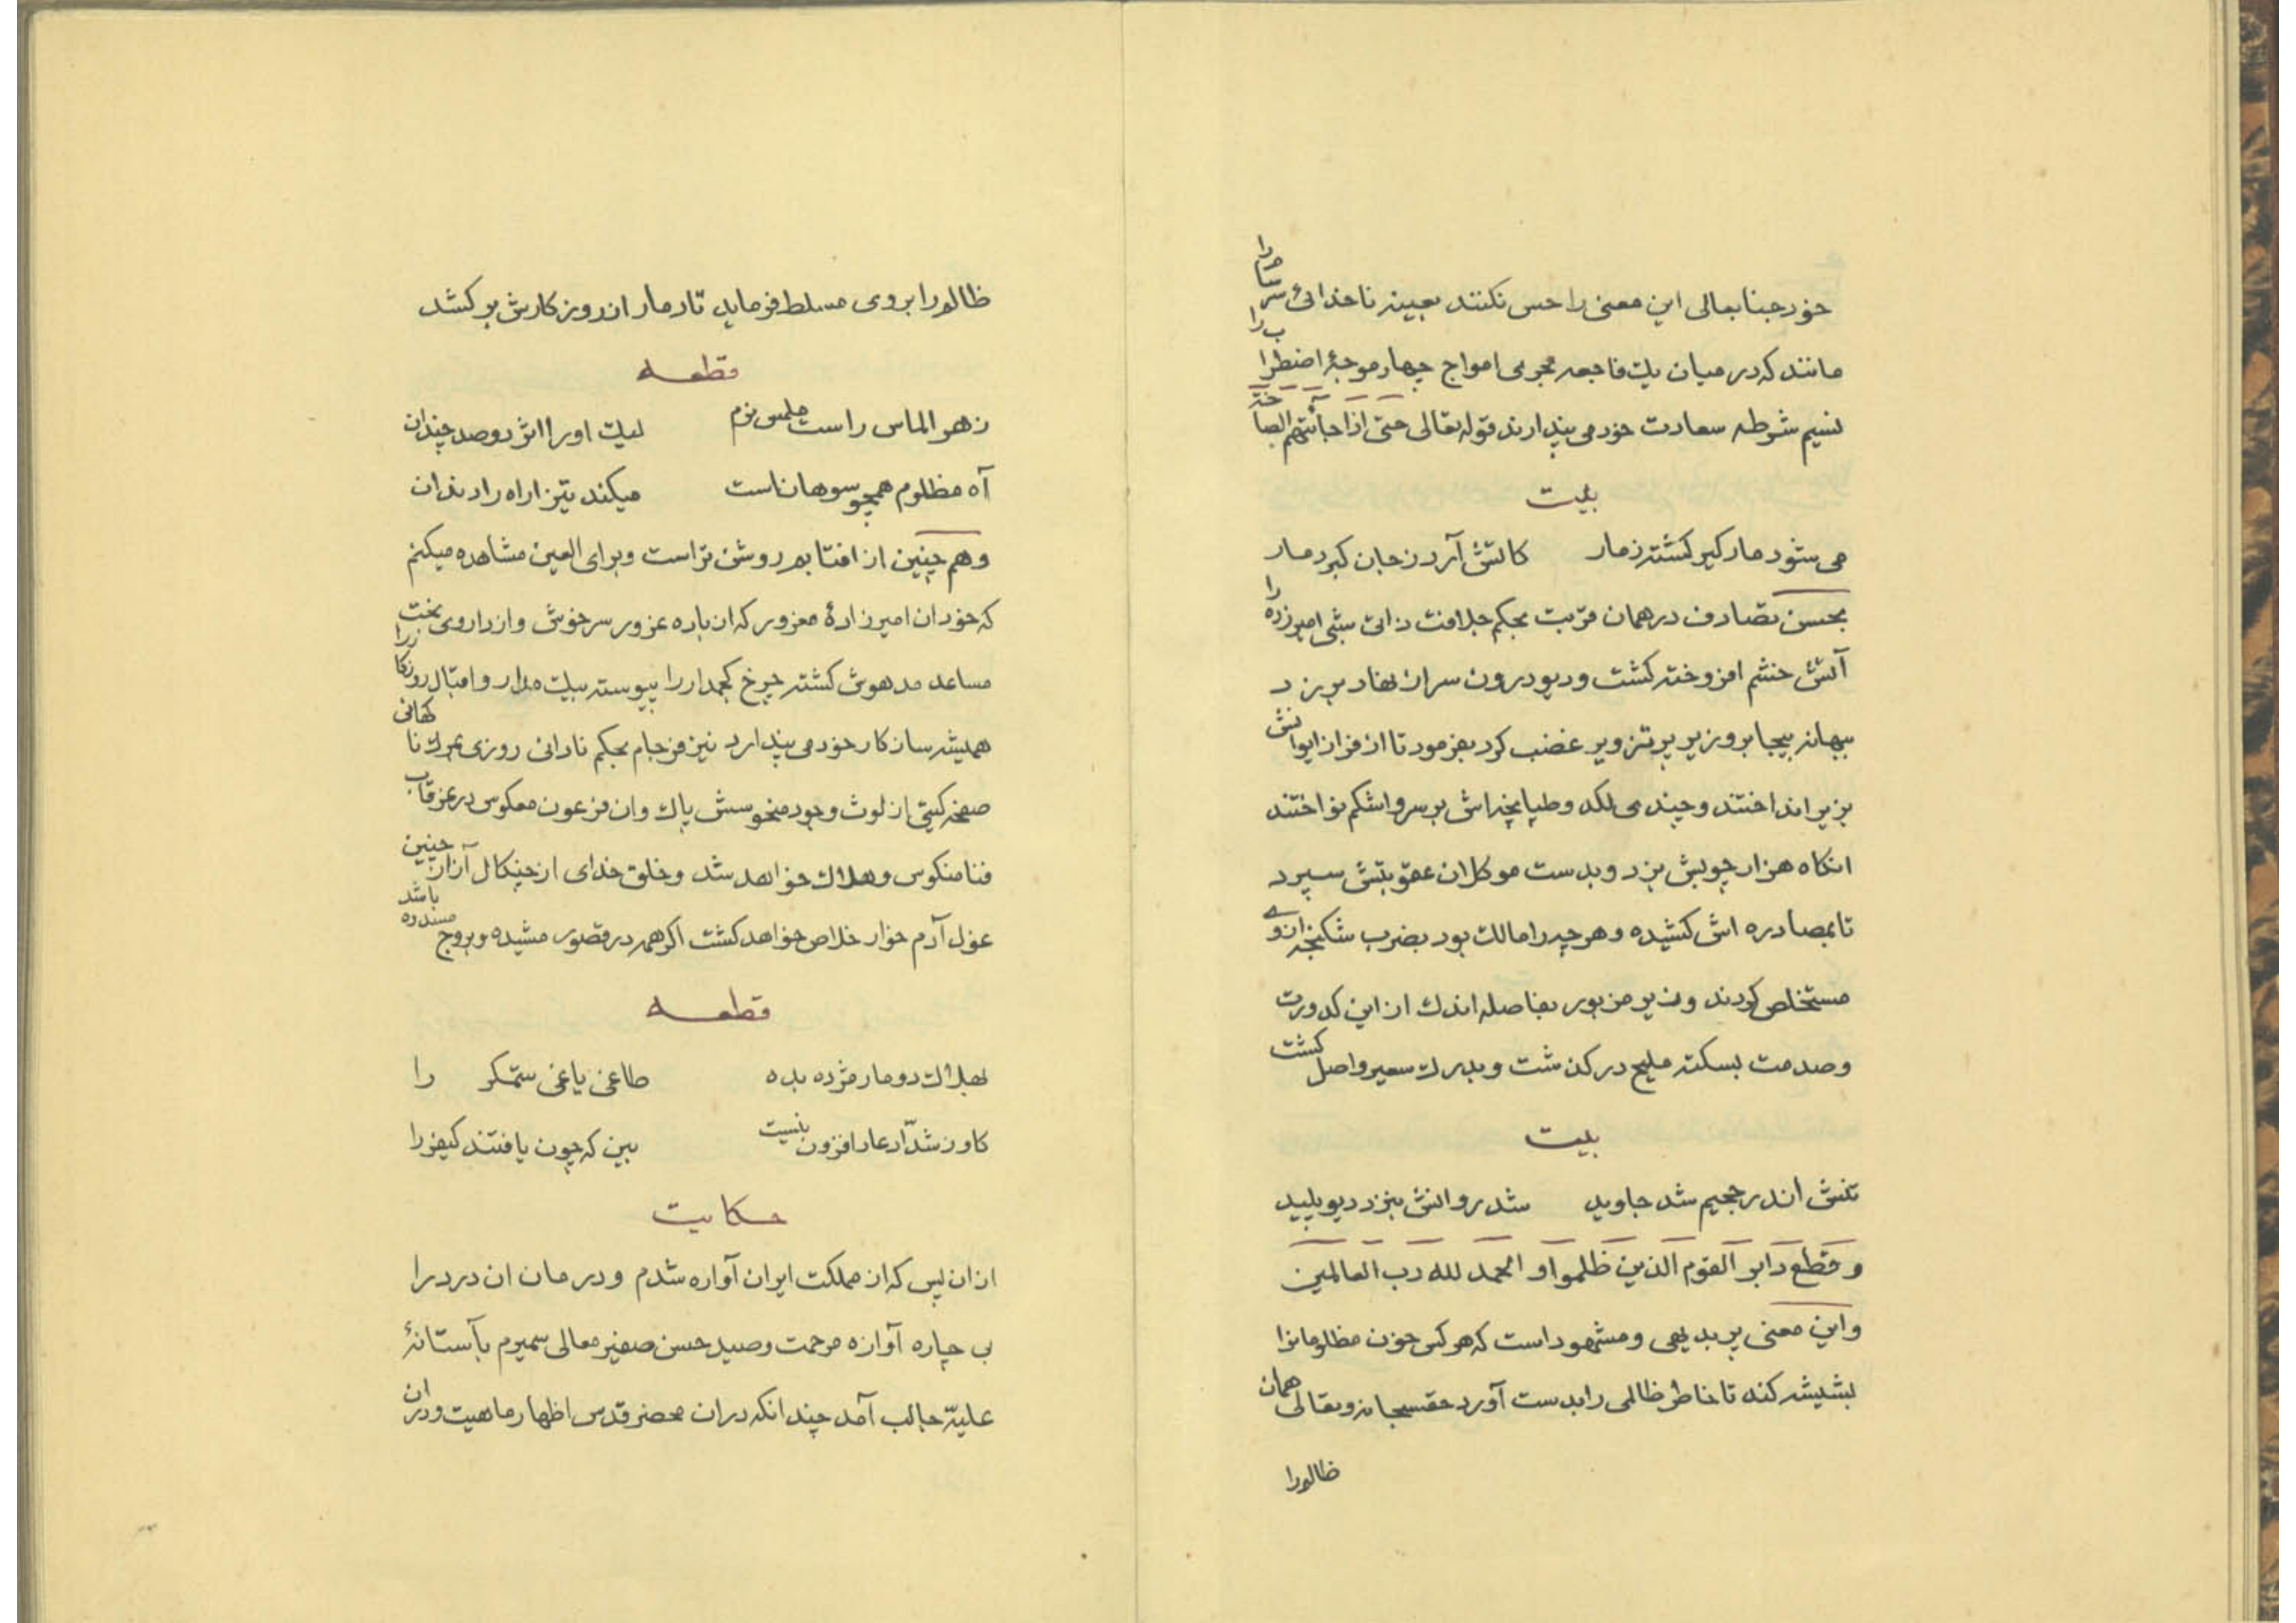 خود جنابعالی این معنی را حس نکنند بعینه ناخدائی سرسام را
مانند که در میان یک فاجعه بحرمی امواج چهار موجهٔ اضطراب را
نسیم شرطه سعادت خود می پندارند قوله تعالی حتی اذا جائتهم الصاخة
بیت
می شود مارکیر کشته زمار کاتش آرد زجان کبر دمار
بحسن تصادف در همان قربت بحکم جلافت ذاتی شبی امیرزده را
آتش خشم افروخته کشت و دیو درون سر از نهاد بر زد
ببهانه بیجا بر وزیر پر تزویر غضب کرد بفرمود تا از فراز ایوانش
بزیر انداختند و چندی لکد و طپانچه اش بر سر و اشکم نواختند
انکاه هزار چوبش بزد و بدست موکلان عقوبتش سپرد
تا بمصادره اش کشیده و هر چه را مالک بود بضرب شکنجه از وی
مستخلص کردند وزیر مزبور بفاصله اندک از این کدورت
وصدمت بسکته ملیح در کذشت و بدرک سعیر واصل کشت
بیت
تنش اندر جحیم شد جاوید شد روانش بنزد دیو پلید
و قطع دابر القوم الذین ظلموا و الحمد لله رب العالمین
و این معنی پر بدیهی و مشهود است که هر کس خون مظلومانرا
بشیشه کند تا خاطر ظالمی را بدست آورد حقسبحانه و تعالی همان
ظالمرا
ظالمرا بر وی مسلط فرماید تا دمار از روزکارش بر کشد
قطعه
زهر الماس راست ملمس نرم لیک او را اثر دو صد چندان
آه مظلوم همچو سوهانست میکند تیز اراه را دندان
و هم چنین از افتابم روشن تر است و برای العین مشاهده میکنم
که خود ان امیرزادهٔ مغرور که از باده غرور سرخوش و از داروی بخت
مساعد مدهوش کشته چرخ کجمدار را پیوسته بیک مدار و اقبال روزکار را
همیشه سازکار خود می پندارد نیز فرجام بحکم نادانی روزی بمرک ناکهانی
صفحه کیتی از لوث وجود منحوسش پاک و ان فرعون معکوس در غرقاب
فنا منکوس و هلاک خواهد شد و خلق خدای از چنکال آزار چنین
غول آدم خوار خلاص خواهد کشت اکر همه در قصور مشیده و بروج مسدوده باشد
قطعه
بهلاک دو مار مژده بده طاغی یاغی ستمکر را
کاو ز شدّاد عاد افزون نیست ببین که چون یافتند کیفر را
حکایت
از ان پس که از مملکت ایران آواره شدم و در مان ان درد را
بی چاره آوازه مرحمت وصیت حسن صفیر معالی سمیرم بآستانهٔ
علیّه جالب آمد چندانکه در ان محضر قدس اظهار ماهیت و در ان